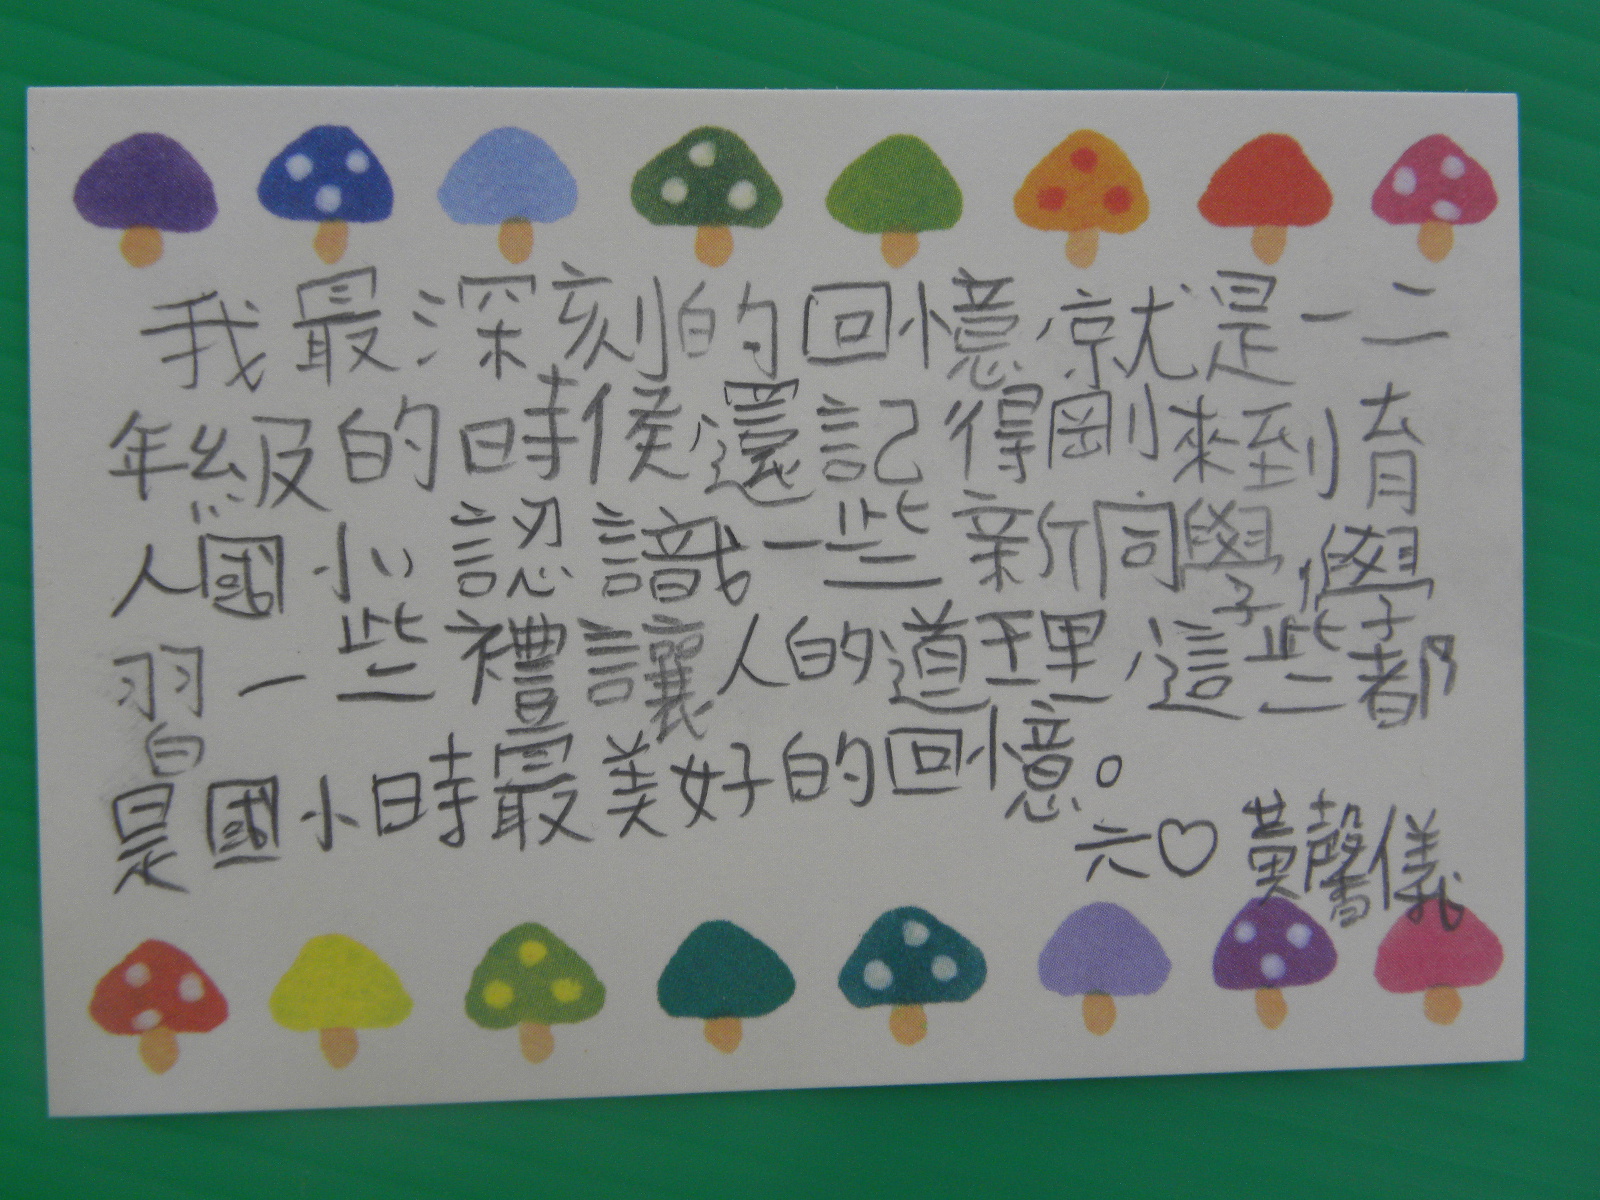 我最深刻的回憶,就是一二
年級的時侯,還記得剛來到育
人國小,認識一些新同學,學
習一些禮讓人的道理,這些都
是國小時最美好的回憶。
六♡ 黃馨儀